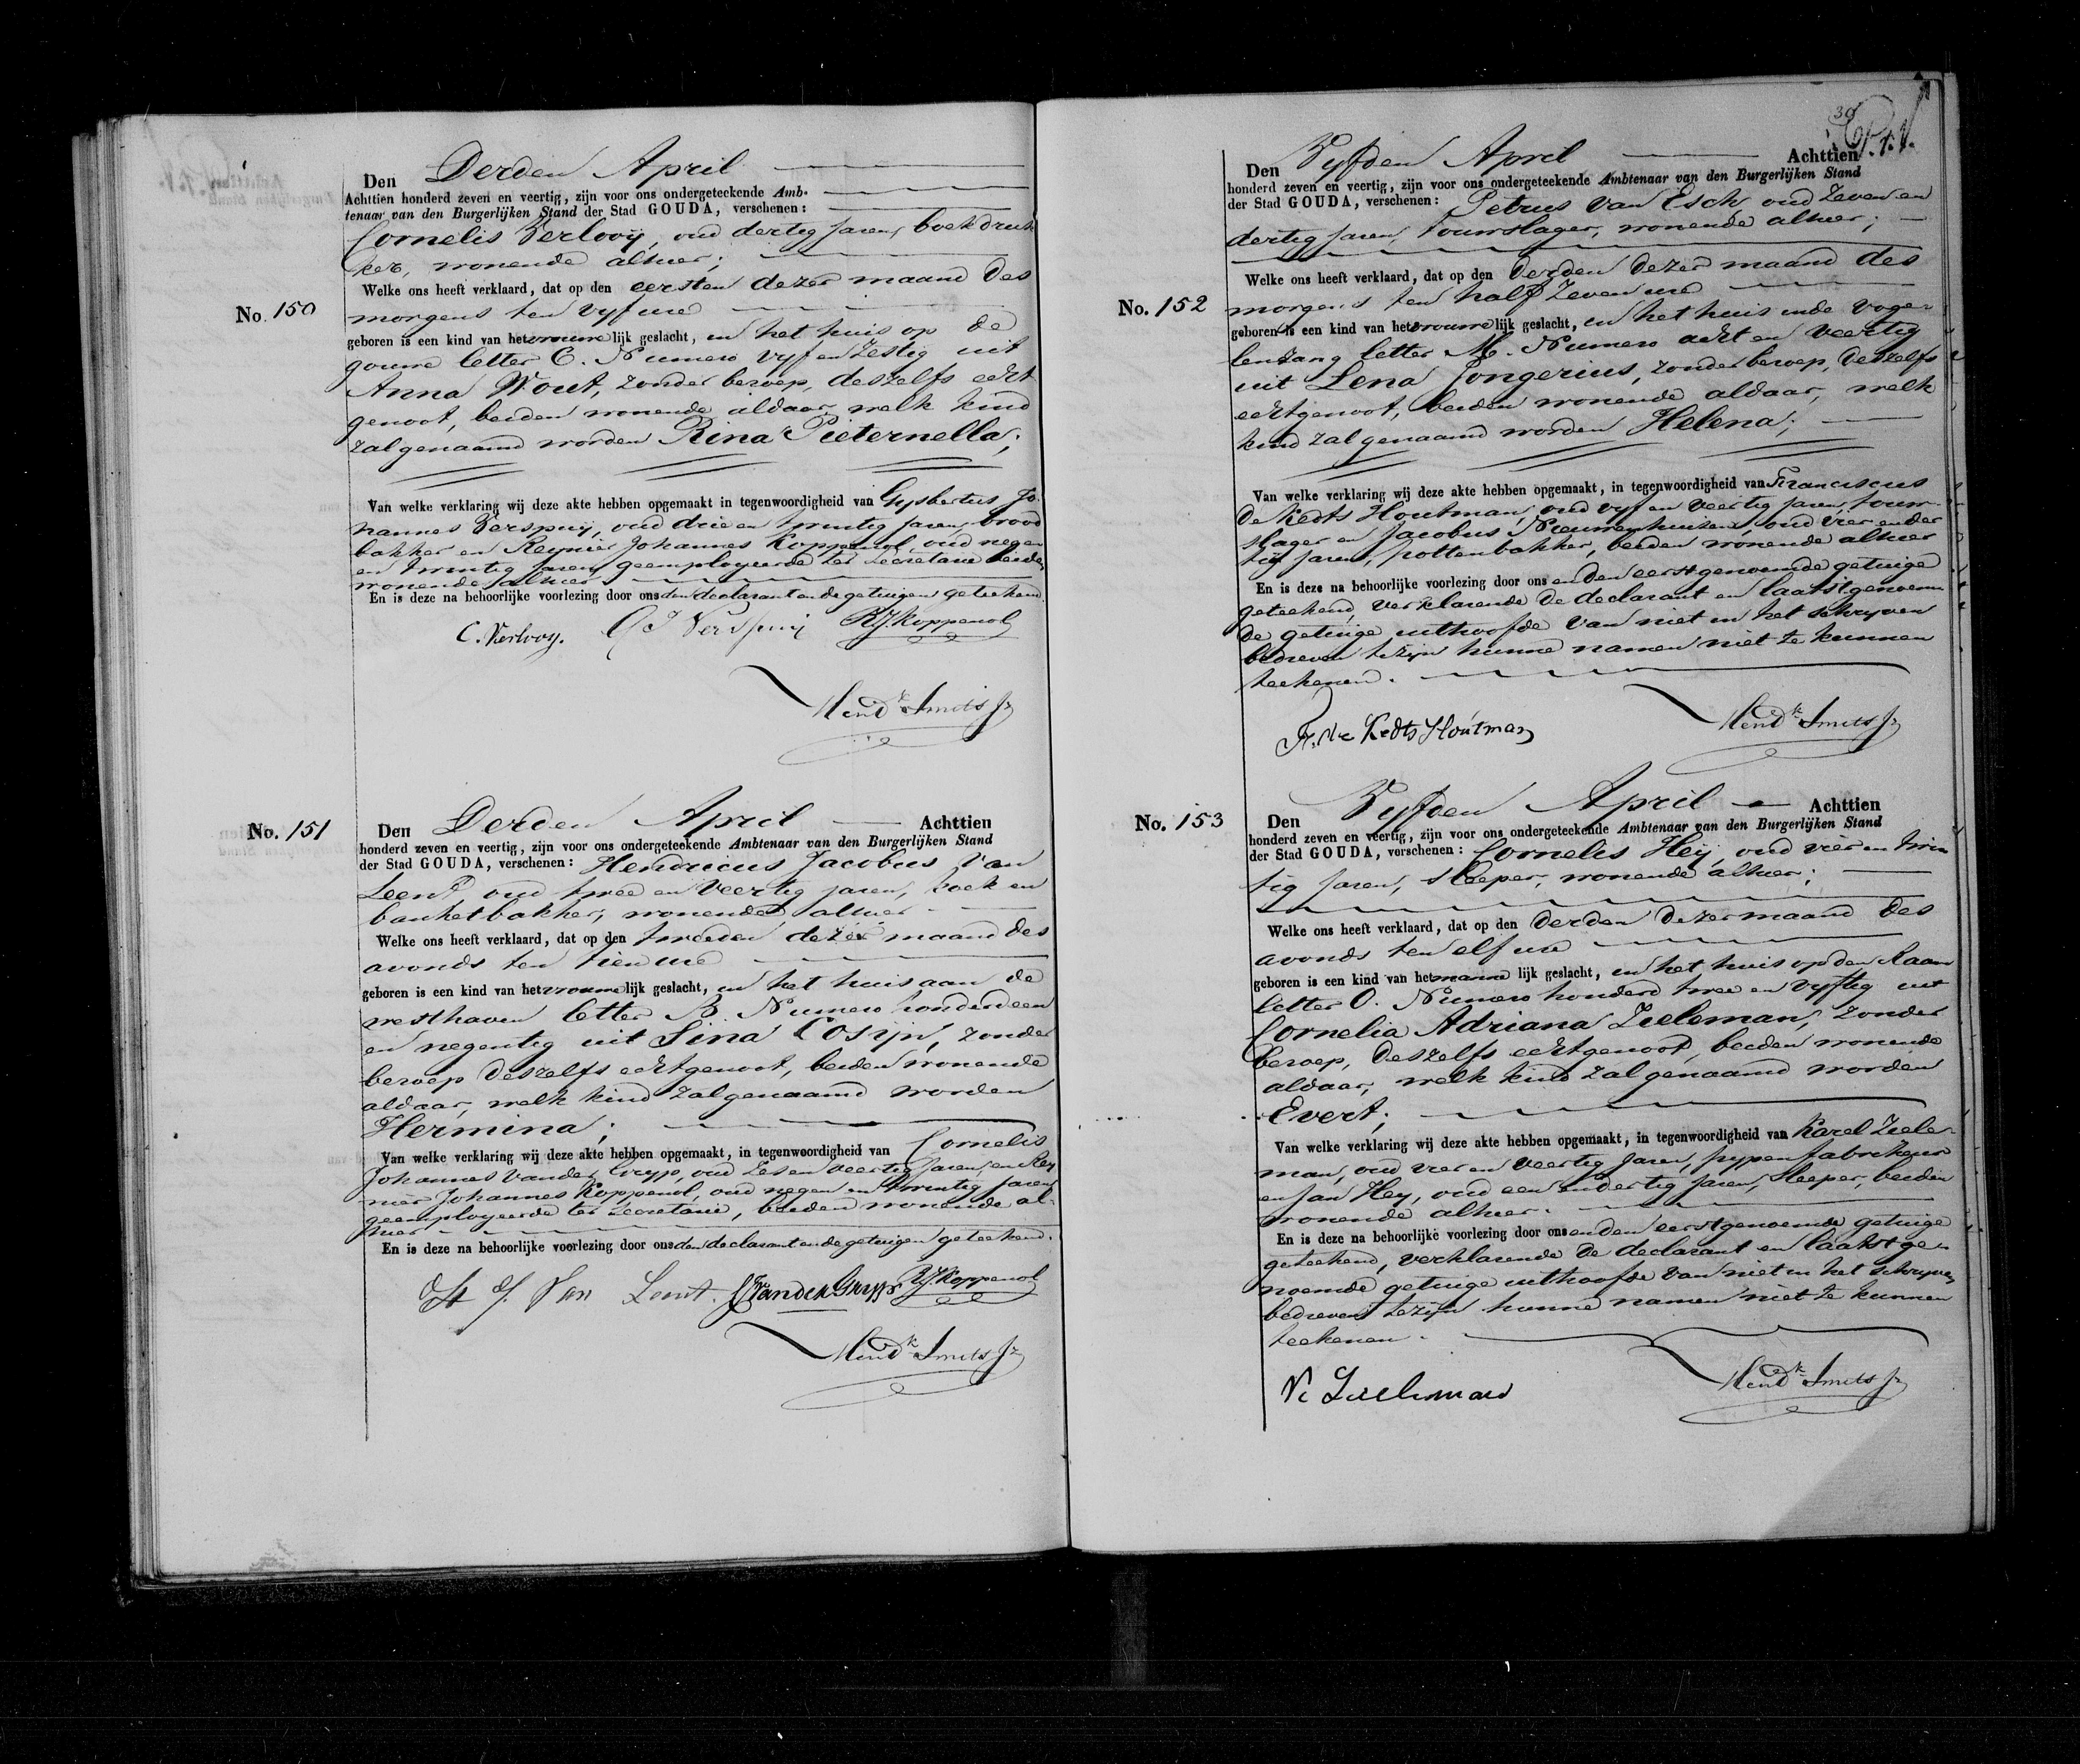 No. 150
Den Derden April
Achttien honderd zeven en veertig, zijn voor ons ondergeteekende Amb-
tenaar van den Burgerlijken Stand der Stad GOUDA, verschenen:
Cornelis Verlooij, oud dertig jaren, boekdruk
ker, wonende alhier;
Welke ons heeft verklaard, dat op den eersten dezer maand des
morgens ten vyf ure
geboren is een kind van het vrouwelijk geslacht, in het huis op de
gouwe letter C. Numero vyf en zestig uit
Anna Wout, zonder beroep, deszelfs echt
genoot, beiden wonende aldaar, welk kind
zal genaamd worden Rina Pieternella;
Van welke verklaring wij deze akte hebben opgemaakt in tegenwoordigheid van Gysbertus Jo-
hannes Verspuij, oud drie en twintig jaren, brood
bakker en Reynier Johannes Koppenol, oud negen
en twintig jaren, geemployeerde ter Secretarie beiden
wonende alhier
En is deze na behoorlijke voorlezing door ons den declarant en de getuigen geteekend.
C. Verlooy. G J Verspuij RJ. Koppenol
Hendk. Smits Jr
No. 151
Den Derden April Achttien
honderd zeven en veertig, zijn voor ons ondergeteekende Ambtenaar van den Burgerlijken Stand
der Stad GOUDA, verschenen: Hendricus Jacobus van
Leent, oud twee en veertig jaren, koek en
banketbakker, wonende alhier
Welke ons heeft verklaard, dat op den tweeden dezer maand des
avonds ten tien ure
geboren is een kind van het vrouwelijk geslacht, in het huis aan de
westhaven letter B. Numero honderd een
en negentig uit Sina Cosijn, zonder
beroep deszelfs echtgenoot, beiden wonende
aldaar, welk kind zal genaamd worden
Hermina;
Van welke verklaring wij deze akte hebben opgemaakt, in tegenwoordigheid van Cornelis
Johannes van der Grypp, oud zes en veertig jaren, en Rey
nier Johannes Koppenol, oud negen en twintig jaren
geemployeerde ter Secretarie, beiden wonende al-
hier
En is deze na behoorlijke voorlezing door ons den declarant en de getuigen geteekend.
H J. Van Leent. CJ Van der Grypp RJ. Koppenol
Hendk. Smits Jr
30
No. 152
Den Vyfden April Achttien
honderd zeven en veertig, zijn voor ons ondergeteekende Ambtenaar van den Burgerlijken Stand
der Stad GOUDA, verschenen: Petrus van Esch, oud zeven en
dertig jaren, touwslager, wonende alhier;
Welke ons heeft verklaard, dat op den derden dezer maand des
morgens ten half zeven ure
geboren is een kind van het vrouwelijk geslacht, in het huis in de Voge-
lenzang letter M. Numero acht en veertig
uit Lena Jongerius, zonder beroep, deszelfs
echtgenoot, beiden wonende aldaar, welk
kind zal genaamd worden Helena;
Van welke verklaring wij deze akte hebben opgemaakt, in tegenwoordigheid van Franciscus
de Kedts Houtman, oud vyf en veertig jaren, touw-
slager en Jacobus Nieuwenhuizen, oud vier en der
tig jaren, pottenbakker, beiden wonende alhier
En is deze na behoorlijke voorlezing door ons en den eerstgenoemde getuige
geteekend, verklarende de declarant en laatstgenoem
de getuige uithoofde van niet in het schryven
bedreven te zijn hunne namen niet te kunnen
teekenen.
Fr. de Kedts Houtman
Hendk. Smits Jr
No. 153
Den Vyfden April Achttien
honderd zeven en veertig, zijn voor ons ondergeteekende Ambtenaar van den Burgerlijken Stand
der Stad GOUDA, verschenen: Cornelis Heij, oud vier en twin
tig jaren, sleeper, wonende alhier;
Welke ons heeft verklaard, dat op den derden dezer maand des
avonds ten elf ure
geboren is een kind van het mannelijk geslacht, in het huis op den Raam
letter O. Numero honderd twee en vyftig uit
Cornelia Adriana Zieleman, zonder
beroep, deszelfs echtgenoot, beiden wonende
aldaar, welk kind zal genaamd worden
Evert;
Van welke verklaring wij deze akte hebben opgemaakt, in tegenwoordigheid van Karel Ziele-
man, oud vier en veertig jaren, pypenfabrikeur
en Jan Hey, oud een en dertig jaren, sleeper, beiden
wonende alhier.
En is deze na behoorlijke voorlezing door ons en den eerstgenoemde getuige
geteekend, verklarende de declarant en laatstge-
noemde getuige uithoofde van niet in het schryven
bedreven te zijn hunne namen niet te kunnen
teekenen.
K Zieleman
Hendk. Smits Jr